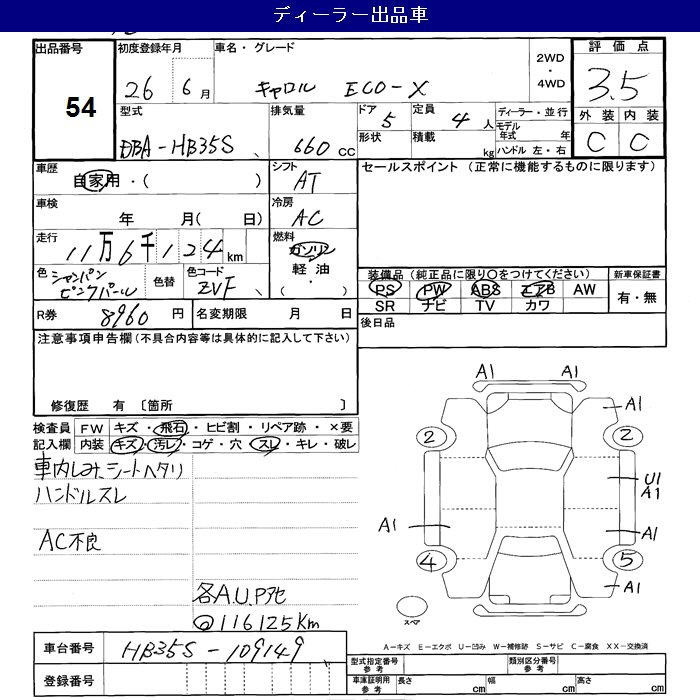 ディーラー出品車
出品番号 54
初度登録年月 26 6月
車名・グレード キャロル ECO-X
2WD・4WD
評価点 3.5
外装 C 内装 C
型式 DBA-HB35S
排気量 660 cc
ドア 5
定員 4人
形状
積載 kg
ディーラー・並行
モデル年式 年
ハンドル 左・右
車歴 自家用・( )
シフト AT
セールスポイント (正常に機能するものに限ります)
車検 年 月( 日)
冷房 AC
走行 11万6千124km
燃料 ガソリン 軽油 ・
色 シャンパンピンクパール
色替
色コード ZVF
装備品 (純正品に限り〇をつけてください)
新車保証書
PS PW ABS エアB AW
有・無
SR ナビ TV カワ
R券 8960 円
名変期限 月 日
後日品
注意事項申告欄(不具合内容等は具体的に記入して下さい)
修復歴 有 〔箇所 〕
検査員記入欄
FW キズ・飛石・ヒビ割・リペア跡・×要
内装 キズ・汚レ・コゲ・穴・スレ・キレ・破レ
車内しみ、シートヘタリ
ハンドルスレ
AC不良
各A.U.Pアセ
116125Km
A1 A1
A1
2 2
U1
A1
A1 A1
4 5
A1
スペア
A-キズ E-エクボ U-凹み W-補修跡 S-サビ C-腐食 XX-交換済
車台番号 HB35S-109149
登録番号
型式指定番号 参考
類別区分番号 参考
車庫証明用 参考 長さ cm 幅 cm 高さ cm